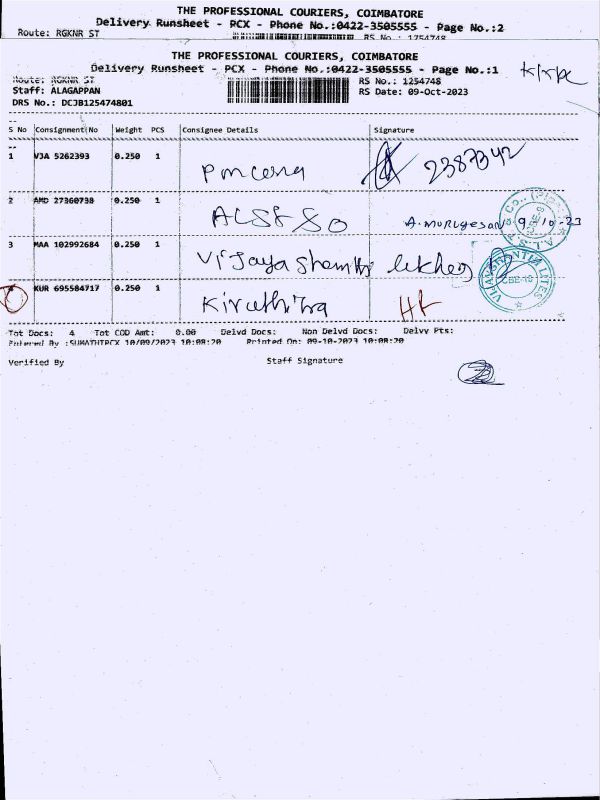 THE PROFESSIONAL COURIERS, COIMBATORE
Delivery Runsheet - PCX - Phone No.:0422-3505555 - Page No.:2
Route: RGKNR ST RS No.: 1254748
THE PROFESSIONAL COURIERS, COIMBATORE
Delivery Runsheet - PCX - Phone No.:0422-3505555 - Page No.:1
Route: RGKNR ST RS No.: 1254748
Staff: ALAGAPPAN RS Date: 09-Oct-2023
DRS No.: DCJB125474801
S No Consignment No Weight PCS Consignee Details Signature
1 VJA 5262393 0.250 1 2387342
2 AMD 27360738 0.250 1 A. Murugesan 9-10-23
3 MAA 102992684 0.250 1 Vijaya
KUR 695584717 0.250 1 Kiruthika
Tot Docs: 4 Tot COD Amt: 0.00 Delvd Docs: Non Delvd Docs: Delvy Pts:
Entered By :SUMATHIPCX 10/09/2023 10:08:20 Printed On: 09-10-2023 10:08:20
Verified By Staff Signature